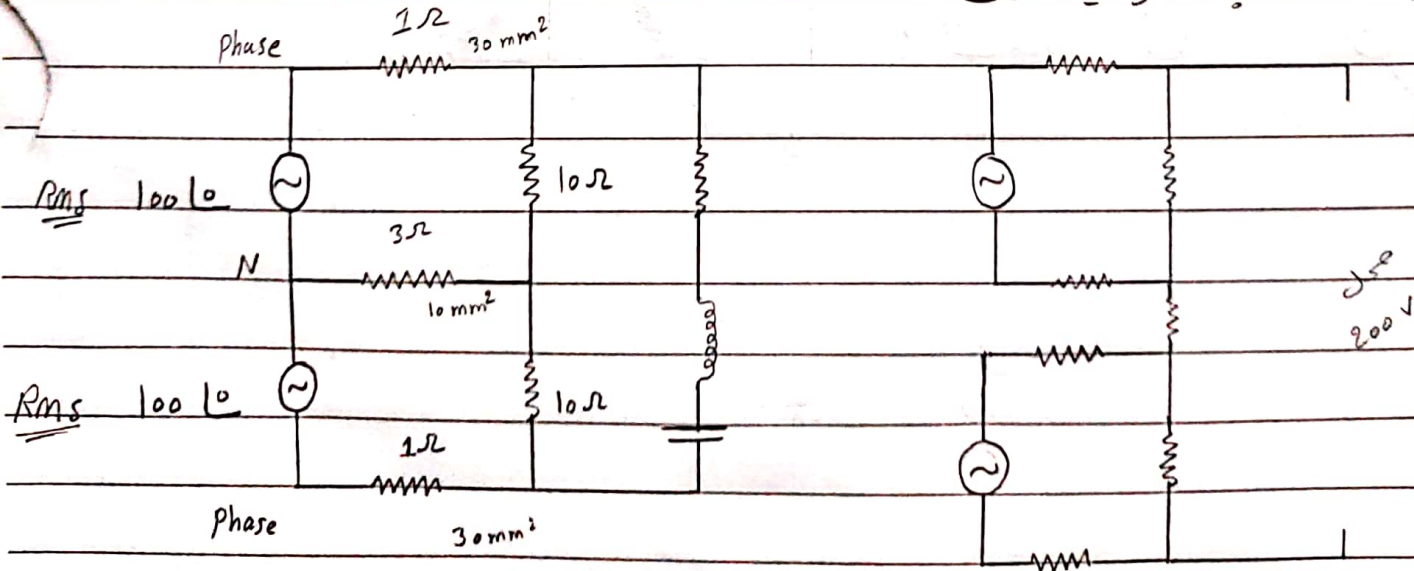 1Ω
Phase 30 mm²
Rms 100 ∠0
10Ω
3Ω
N
10 mm²
Rms 100 ∠0
10Ω
1Ω
Phase
30 mm²
200 V